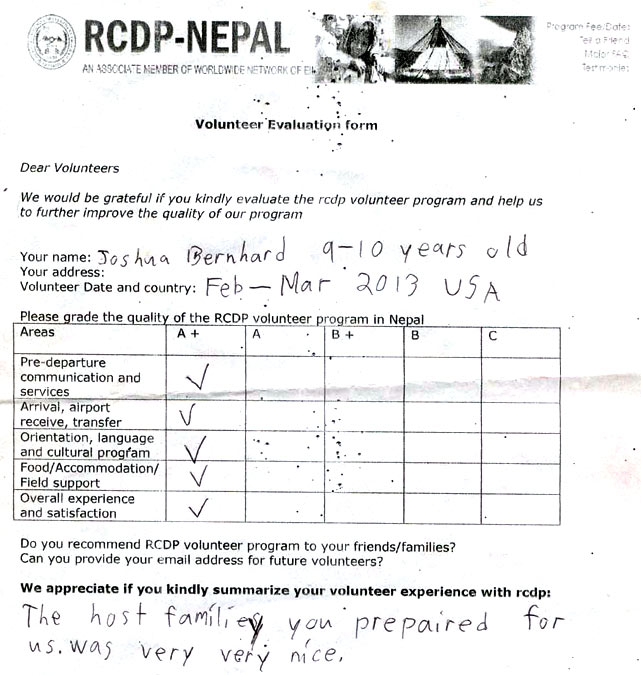 RCDP-NEPAL
AN ASSOCIATE MEMBER OF WORLDWIDE NETWORK OF
Program Fee/Dates
Tell a Friend
Major FAQ
Testimonies
Volunteer Evaluation form
Dear Volunteers
We would be grateful if you kindly evaluate the rcdp volunteer program and help us
to further improve the quality of our program
Your name: Joshua Bernhard 9-10 years old
Your address:
Volunteer Date and country: Feb - Mar 2013 USA
Please grade the quality of the RCDP volunteer program in Nepal
Areas A+ A B+ B C
Pre-departure
communication and
services ✓
Arrival, airport
receive, transfer ✓
Orientation, language
and cultural program ✓
Food/Accommodation/
Field support ✓
Overall experience
and satisfaction ✓
Do you recommend RCDP volunteer program to your friends/families?
Can you provide your email address for future volunteers?
We appreciate if you kindly summarize your volunteer experience with rcdp:
The host family you prepaired for
us. was very very nice.